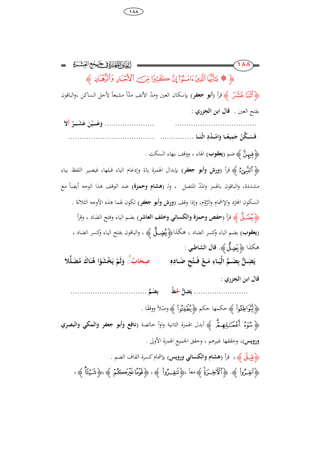 ١٨٨
١٨٨
﴿ * يَٰٓأَيُّهَا ٱلَّذِينَ ءَامَنُوٓا۟ إِنَّ كَثِيرًا مِّنَ ٱلْأَحْبَارِ وَٱلرُّهْبَانِ ﴾
﴿ ٱثْنَا عَشَرَ ﴾ قرأ (أبو جعفر) بإسكان العين ومدّ الألف مدّاً مشبعاً لأجل الساكن ،والباقون
بفتح العين . قال ابن الجزري :
................................ ...................... وَعَيْنُ عَشَرْ أَلَا
فَسَكِّنْ جَمِيعًا وَامْدُدِ اثْنَا ............... ..................................
﴿ فِيهِنَّ ﴾ ضم (يعقوب) الهاء ، ووقف بهاء السكت .
قرأ (ورش وأبو جعفر) بإبدال الهمزة ياءً وإدغام الياء قبلها، فيصير اللفظ بياء
مشددة، والباقون بالهمز والمدّ المتصل . ولـ (هشام وحمزة) عند الوقف هذا الوجه أيضاً مع
السكون المجرّد والإشمام والرَّوم، وإذا وقف (ورش وأبو جعفر) تكون لهما هذه الأوجه الثلاثة .
﴿ يُضَلُّ ﴾ قرأ (حفص وحمزة والكسائي وخلف العاشر) بضم الياء وفتح الضاد ، وقرأ
(يعقوب) بضم الياء وكسر الضاد ، هكذا ﴿ يُضِلُّ ﴾ ، والباقون بفتح الياء وكسر الضاد ،
هكذا ﴿ يَضِلُّ ﴾. قال الشاطبي :
يَضِلُّ بِضَمِّ الْيَاءِ مَعْ فَتْحِ ضَادِهِ صِحَابٌ وَلَمْ يَخْشَوْا هُنَاكَ مُضَلِّلَا
قال ابن الجزري :
...................... يَضِلُّ حُطْ بِضَمٍّ ..............................
﴿ لِيُوَاطِـُٔوا۟ ﴾ حكمها حكم ﴿ لِيُطْفِـُٔوا۟ ﴾ وصلاً ووقفًا .
﴿ سُوٓءُ أَعْمَٰلِهِمْ ﴾ أبدل الهمزة الثانية واوًا خالصة (نافع وأبو جعفر والمكي والبصري
ورويس)، وحققها غيرهم ، وحقق الجميع الهمزة الأولى .
﴿ قِيلَ ﴾ ، قرأ (هشام والكسائي ورويس) بإشمام كسرة القاف الضم .
﴿ ٱنفِرُوا۟ ﴾. ﴿ ٱلْءَاخِرَةِ ﴾ معاً، ﴿ تَنفِرُوا۟ ﴾ ، ﴿ قَوْمًا غَيْرَكُمْ ﴾، ﴿ شَيْـًٔا ﴾ ،